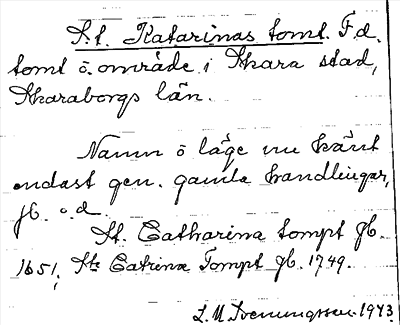 S:t. Katarinas tomt. F.d.
tomt o. område i Skara stad,
Skaraborgs län.
Namn o läge nu känt
endast gen. gamla handlingar,
jb. o.d.
St. Catharina tompt jb.
1651, Sta Catrina Tompt jb. 1749.
L. M. Svenungsson 1943.